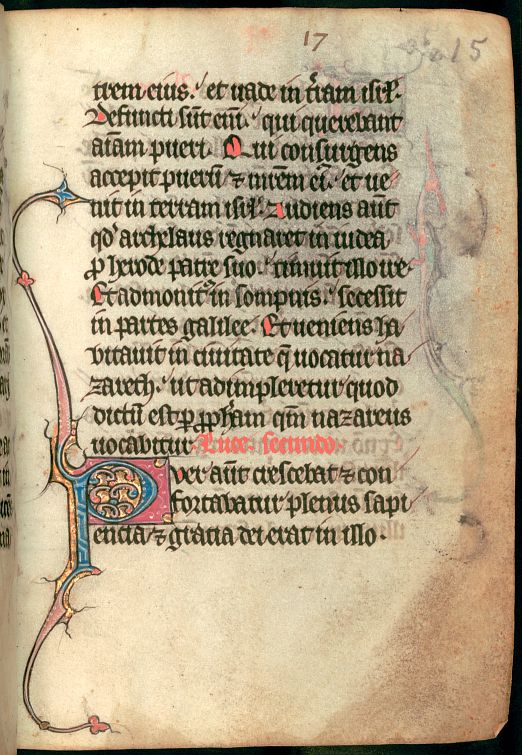 17
15
trem eius. et uade in t̄ram isr̄l.
Defuncti sūt eni̅. qui querebant
aīam pueri. Qui consurgens
accepit pueru̅ ⁊ mrēm ei᷒. et ue-
nit in terram isr̄l. Audiens aūt
qd̄ archelaus regnaret in iudea
ꝓ herode patre suo. timuit illo ire.
Et admonit᷒ in sompnis. secessit
in partes galilee. Et ueniens ha-
bitauit in ciuitate q̄ uocatur na-
zareth. ut adimpleretur quod
dictu̅ est ꝑ ꝓph̄am qm̄ nazareus
uocabitur. Luce. secundo.
Puer aūt crescebat ⁊ con
fortabatur plenus sapi
encia ⁊ gracia dei erat in illo.